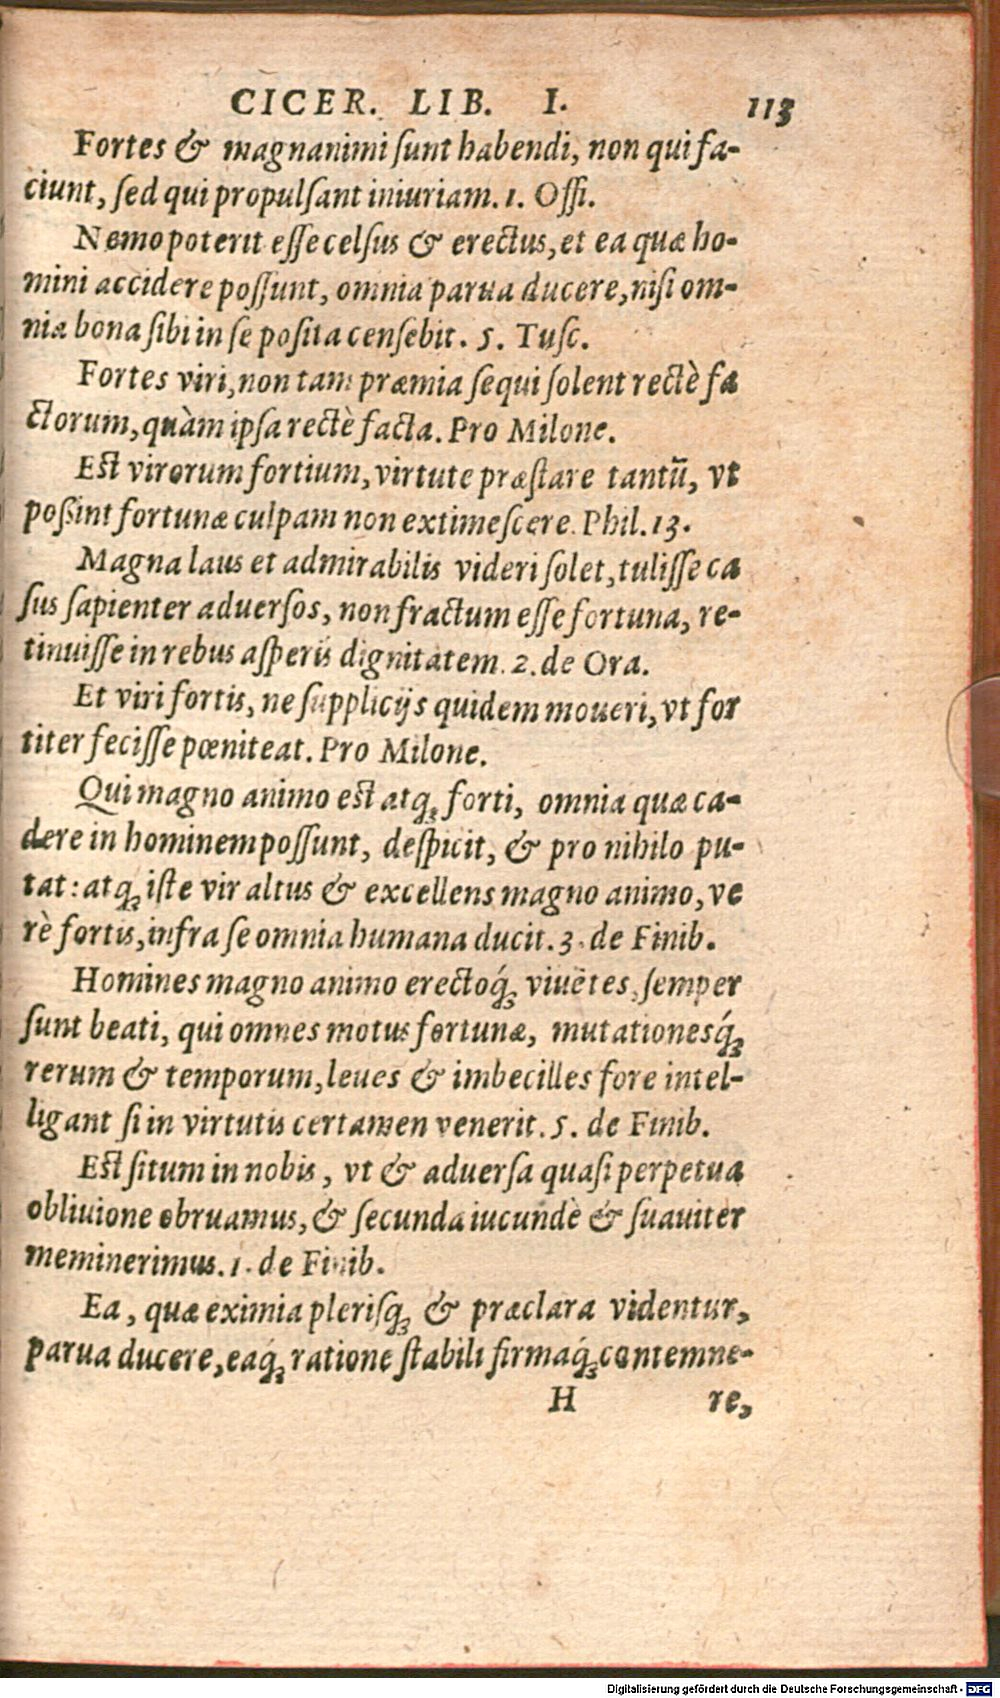 CICER. LIB. I. 113
Fortes & magnanimi ſunt habendi, non qui fa-
ciunt, ſed qui propulſant iniuriam. 1. Offi.
Nemo poterit eſſe celſus & erectus, et ea quæ ho-
mini accidere poſſunt, omnia parua ducere, niſi om-
nia bona ſibi in ſe poſita cenſebit. 5. Tuſc.
Fortes viri, non tam præmia ſequi ſolent rectè fa
ctorum, quàm ipſa rectè facta. Pro Milone.
Est virorum fortium, virtute præſtare tantū, vt
poßint fortunæ culpam non extimeſcere. Phil. 13.
Magna laus et admirabilis videri ſolet, tuliſſe ca
ſus ſapienter aduerſos, non fractum eſſe fortuna, re-
tinuiſſe in rebus aſperis dignitatem. 2. de Ora.
Et viri fortis, ne ſupplicijs quidem moueri, vt for
titer feciſſe pœniteat. Pro Milone.
Qui magno animo est atq; forti, omnia quæ ca-
dere in hominem poſſunt, deſpicit, & pro nihilo pu-
tat: atq; iſte vir altus & excellens magno animo, ve
rè fortis, infra ſe omnia humana ducit. 3. de Finib.
Homines magno animo erectoq́; viuētes, ſemper
ſunt beati, qui omnes motus fortunæ, mutationesq́;
rerum & temporum, leues & imbecilles fore intel-
ligant ſi in virtutis certamen venerit. 5. de Finib.
Est ſitum in nobis, vt & aduerſa quaſi perpetua
obliuione obruamus, & ſecunda iucundè & ſuauiter
meminerimus. 1. de Finib.
Ea, quæ eximia pleriſq; & præclara videntur,
parua ducere, eaq́; ratione ſtabili firmaq́; contemne-
H re,
Digitalisierung gefördert durch die Deutsche Forschungsgemeinschaft - DFG